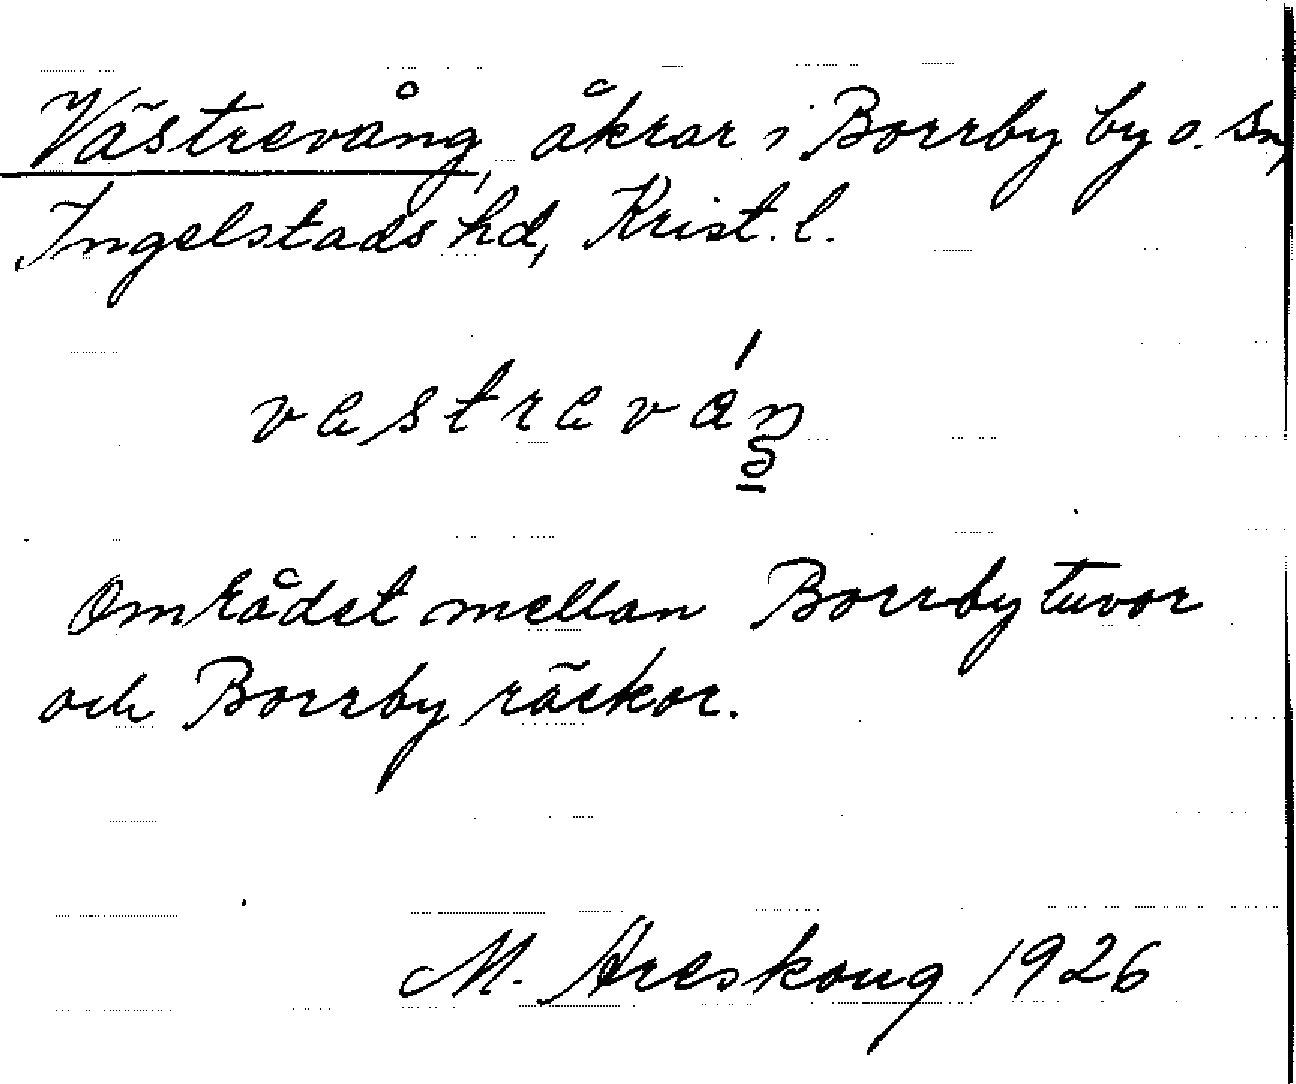 Västrevång, åkrar i Borrby by o. sn,
Ingelstads hd, Krist. l.
vastraváŋ
Området mellan Borrby tuvor
och Borrby räckor.
M. Areskoug 1926